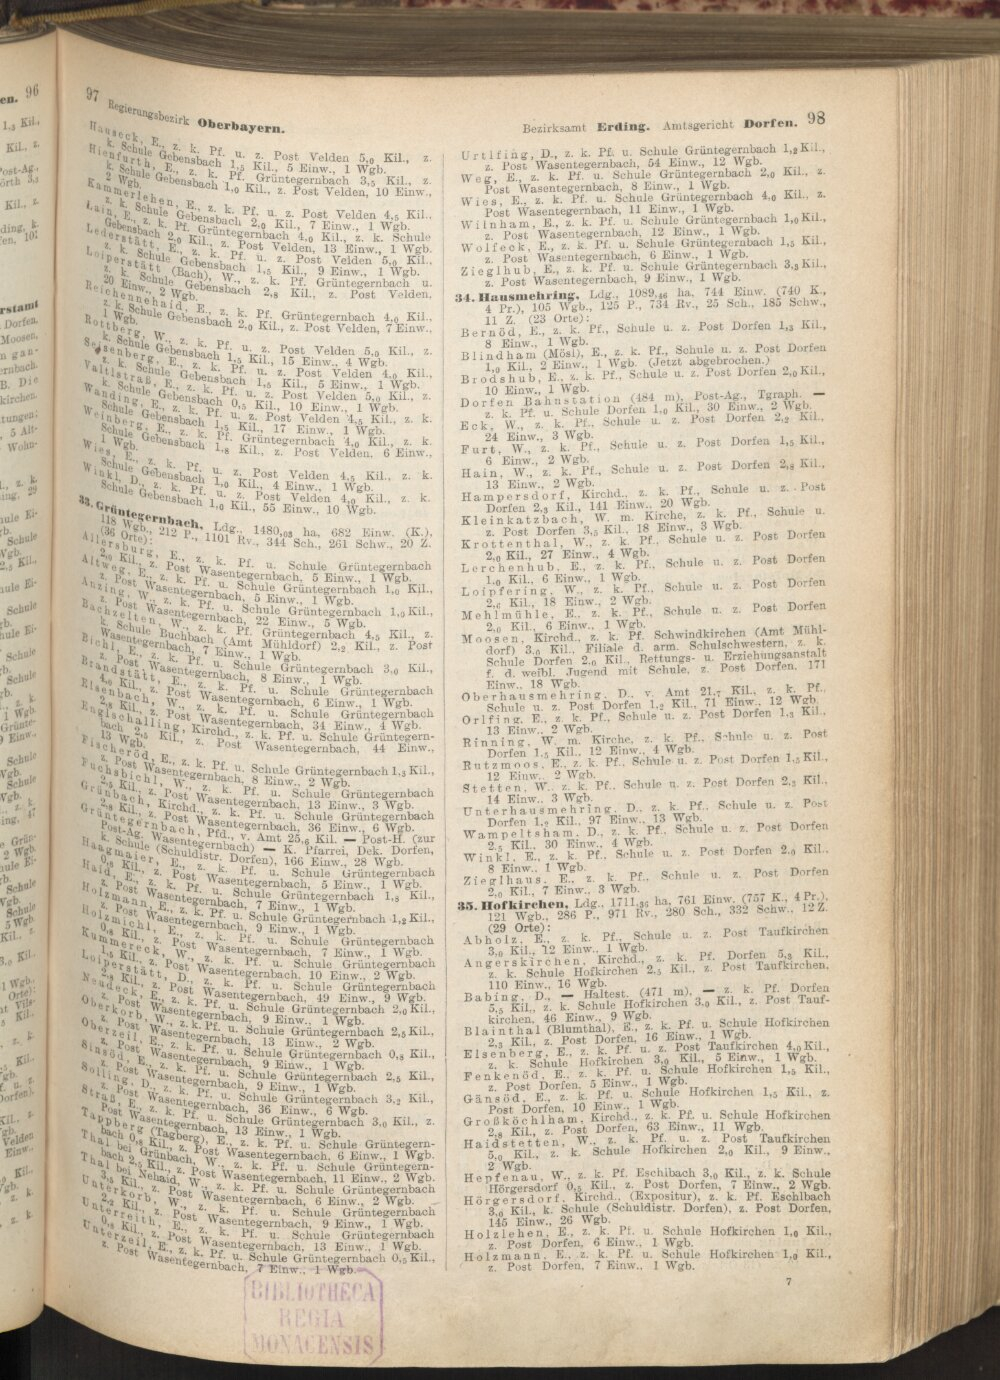 97 Regierungsbezirk Oberbayern.
Hauseck, E., z. k. Pf. u. z. Post Velden 5,0 Kil., z.
k. Schule Gebensbach 1,5 Kil., 5 Einw., 1 Wgb.
Hienfurth, E., z. k. Pf. Grüntegernbach 3,5 Kil., z.
k. Schule Gebensbach 1,0 Kil., z. Post Velden, 10 Einw.,
2 Wgb.
Kammerlehen, E., z. k. Pf. u. z. Post Velden 4,5 Kil.,
z. k. Schule Gebensbach 2,0 Kil., 7 Einw., 1 Wgb.
Lain, E., z. k. Pf. Grüntegernbach 4,0 Kil., z. k. Schule
Gebensbach 2,0 Kil., z. Post Velden, 13 Einw., 1 Wgb.
Lederstätt, E., z. k. Pf. u. z. Post Velden 5,0 Kil.,
z. k. Schule Gebensbach 1,5 Kil., 9 Einw., 1 Wgb.
Loiperstätt (Bach), W., z. k. Pf. Grüntegernbach u.
z. k. Schule Gebensbach 2,8 Kil., z. Post Velden,
20 Einw., 2 Wgb.
Reichennehaid, E., z. k. Pf. Grüntegernbach 4,0 Kil.,
z. k. Schule Gebensbach 2,0 Kil., z. Post Velden, 7 Einw.,
1 Wgb.
Rottberg, W., z. k. Pf. u. z. Post Velden 5,0 Kil., z.
k. Schule Gebensbach 1,5 Kil., 15 Einw., 4 Wgb.
Seisenberg, E., z. k. Pf. u. z. Post Velden 4,0 Kil.,
z. k. Schule Gebensbach 1,5 Kil., 5 Einw., 1 Wgb.
Valtlstraß, E., z. k. Pf. u. z. Post Velden 5,0 Kil., z.
k. Schule Gebensbach 0,5 Kil., 10 Einw., 1 Wgb.
Wanding, E., z. k. Pf. u. z. Post Velden 4,5 Kil., z. k.
Schule Gebensbach 1,5 Kil., 17 Einw., 1 Wgb.
Weinberg, E., z. k. Pf. Grüntegernbach 4,0 Kil., z. k.
Schule Gebensbach 1,8 Kil., z. Post Velden, 6 Einw.,
1 Wgb.
Wies, E., z. k. Pf. u. z. Post Velden 4,5 Kil., z. k.
Schule Gebensbach 1,0 Kil., 4 Einw., 1 Wgb.
Winkl, D., z. k. Pf. u. z. Post Velden 4,0 Kil., z. k.
Schule Gebensbach 1,0 Kil., 55 Einw., 10 Wgb.
33. Grüntegernbach, Ldg., 1480,03 ha, 682 Einw. (K.),
118 Wgb., 212 P., 1101 Rv., 344 Sch., 261 Schw., 20 Z.
(36 Orte):
Allersburg, E., z. k. Pf. u. Schule Grüntegernbach
2,0 Kil., z. Post Wasentegernbach, 5 Einw., 1 Wgb.
Altweg, E., z. k. Pf. u. Schule Grüntegernbach 1,0 Kil.,
z. Post Wasentegernbach, 5 Einw., 1 Wgb.
Anzing, W., z. k. Pf. u. Schule Grüntegernbach 1,0 Kil.,
z. Post Wasentegernbach, 22 Einw., 5 Wgb.
Bachzelten, W., z. k. Pf. Grüntegernbach 4,5 Kil., z.
k. Schule Buchbach (Amt Mühldorf) 2,2 Kil., z. Post
Wasentegernbach, 7 Einw., 1 Wgb.
Bichl, E., z. k. Pf. u. Schule Grüntegernbach 3,0 Kil.,
z. Post Wasentegernbach, 8 Einw., 1 Wgb.
Brandstätt, E., z. k. Pf. u. Schule Grüntegernbach
4,0 Kil., z. Post Wasentegernbach, 6 Einw., 1 Wgb.
Eisenbach, W., z. k. Pf. u. Schule Grüntegernbach
2,8 Kil., z. Post Wasentegernbach, 34 Einw., 4 Wgb.
Englschalling, Kirchd., z. k. Pf. u. Schule Grüntegern-
bach 2,5 Kil., z. Post Wasentegernbach, 44 Einw.,
13 Wgb.
Fischeröd, E., z. k. Pf. u. Schule Grüntegernbach 1,3 Kil.,
z. Post Wasentegernbach, 8 Einw., 2 Wgb.
Fuchsbichl, W., z. k. Pf. u. Schule Grüntegernbach
2,5 Kil., z. Post Wasentegernbach, 13 Einw., 3 Wgb.
Grünbach, Kirchd., z. k. Pf. u. Schule Grüntegernbach
2,8 Kil., z. Post Wasentegernbach, 36 Einw., 6 Wgb.
Grüntegernbach, Pfd., v. Amt 25,6 Kil. — Post-H. (zur
Post-Ag. Wasentegernbach) — K. Pfarrei, Dek. Dorfen,
k. Schule (Schuldistr. Dorfen), 166 Einw., 28 Wgb.
Haagmaier, E., z. k. Pf. u. Schule Grüntegernbach
0,8 Kil., z. Post Wasentegernbach, 5 Einw., 1 Wgb.
Haid, E., z. k. Pf. u. Schule Grüntegernbach 1,8 Kil.,
z. Post Wasentegernbach, 7 Einw., 1 Wgb.
Holzmann, E., z. k. Pf. u. Schule Grüntegernbach 1,2 Kil.,
z. Post Wasentegernbach, 9 Einw., 1 Wgb.
Holzmichl, E., z. k. Pf. u. Schule Grüntegernbach
0,8 Kil., z. Post Wasentegernbach, 7 Einw., 1 Wgb.
Kummereck, W., z. k. Pf. u. Schule Grüntegernbach
1,5 Kil., z. Post Wasentegernbach, 10 Einw., 2 Wgb.
Loiperstätt, D., z. k. Pf. u. Schule Grüntegernbach
2,3 Kil., z. Post Wasentegernbach, 49 Einw., 9 Wgb.
Neudeck, E., z. k. Pf. u. Schule Grüntegernbach 2,0 Kil.,
z. Post Wasentegernbach, 9 Einw., 1 Wgb.
Oberkorb, W., z. k. Pf. u. Schule Grüntegernbach 2,5 Kil.,
z. Post Wasentegernbach, 13 Einw., 2 Wgb.
Oberzeil, E., z. k. Pf. u. Schule Grüntegernbach 0,8 Kil.,
z. Post Wasentegernbach, 9 Einw., 1 Wgb.
Sinsöd, E., z. k. Pf. u. Schule Grüntegernbach 2,5 Kil.,
z. Post Wasentegernbach, 9 Einw., 1 Wgb.
Solling, D., z. k. Pf. u. Schule Grüntegernbach 3,2 Kil.,
z. Post Wasentegernbach, 36 Einw., 6 Wgb.
Straß, E., z. k. Pf. u. Schule Grüntegernbach 3,0 Kil., z.
Post Wasentegernbach, 13 Einw., 1 Wgb.
Tappberg (Tagberg), E., z. k. Pf. u. Schule Grüntegern-
bach 0,8 Kil., z. Post Wasentegernbach, 6 Einw., 1 Wgb.
Thal bei Grünbach, W., z. k. Pf. u. Schule Grüntegern-
bach 2,5 Kil., z. Post Wasentegernbach, 11 Einw., 2 Wgb.
Thal bei Nehaid, W., z. k. Pf. u. Schule Grüntegernbach
3,5 Kil., z. Post Wasentegernbach, 6 Einw., 2 Wgb.
Unterkorb, W., z. k. Pf. u. Schule Grüntegernbach
2,2 Kil., z. Post Wasentegernbach, 9 Einw., 1 Wgb.
Unterreith, E., z. k. Pf. u. Schule Grüntegernbach
0,8 Kil., z. Post Wasentegernbach, 13 Einw., 1 Wgb.
Unterzeil, E., z. k. Pf. u. Schule Grüntegernbach 0,5 Kil.,
z. Post Wasentegernbach, 7 Einw., 1 Wgb.
BIBLIOTHECA
REGIA
MONACENSIS
Bezirksamt Erding. Amtsgericht Dorfen. 98
Urtlfing, D., z. k. Pf. u. Schule Grüntegernbach 1,2 Kil.,
z. Post Wasentegernbach, 54 Einw., 12 Wgb.
Weg, E., z. k. Pf. u. Schule Grüntegernbach 2,0 Kil., z.
Post Wasentegernbach, 8 Einw., 1 Wgb.
Wies, E., z. k. Pf. u. Schule Grüntegernbach 4,0 Kil., z.
Post Wasentegernbach, 11 Einw., 1 Wgb.
Wilnham, E., z. k. Pf. u. Schule Grüntegernbach 1,0 Kil.,
z. Post Wasentegernbach, 12 Einw., 1 Wgb.
Wolfeck, E., z. k. Pf. u. Schule Grüntegernbach 1,5 Kil.,
z. Post Wasentegernbach, 6 Einw., 1 Wgb.
Zieglhub, E., z. k. Pf. u. Schule Grüntegernbach 3,3 Kil.,
z. Post Wasentegernbach, 9 Einw., 1 Wgb.
34. Hausmehring, Ldg., 1089,46 ha, 744 Einw. (740 K.,
4 Pr.), 105 Wgb., 125 P., 734 Rv., 25 Sch., 185 Schw.,
11 Z. (23 Orte):
Bernöd, E., z. k. Pf., Schule u. z. Post Dorfen 1,3 Kil.,
8 Einw., 1 Wgb.
Blindham (Mösl), E., z. k. Pf., Schule u. z. Post Dorfen
1,0 Kil., 2 Einw., 1 Wgb. (Jetzt abgebrochen.)
Brodshub, E., z. k. Pf., Schule u. z. Post Dorfen 2,0 Kil.,
10 Einw., 1 Wgb.
Dorfen Bahnstation (484 m), Post-Ag., Tgraph. —
z. k. Pf. u. Schule Dorfen 1,0 Kil., 30 Einw., 2 Wgb.
Eck, W., z. k. Pf., Schule u. z. Post Dorfen 2,2 Kil.,
24 Einw., 3 Wgb.
Furt, W., z. k. Pf., Schule u. z. Post Dorfen 1,5 Kil.,
6 Einw., 2 Wgb.
Hain, W., z. k. Pf., Schule u. z. Post Dorfen 2,8 Kil.,
13 Einw., 2 Wgb.
Hampersdorf, Kirchd., z. k. Pf., Schule u. z. Post
Dorfen 2,3 Kil., 141 Einw., 20 Wgb.
Kleinkatzbach, W. m. Kirche, z. k. Pf., Schule u.
z. Post Dorfen 3,5 Kil., 18 Einw., 3 Wgb.
Krottenthal, W., z. k. Pf., Schule u. z. Post Dorfen
2,0 Kil., 27 Einw., 4 Wgb.
Lerchenhub, E., z. k. Pf., Schule u. z. Post Dorfen
1,0 Kil., 6 Einw., 1 Wgb.
Loipfering, W., z. k. Pf., Schule u. z. Post Dorfen
Kil., 18 Einw., 2 Wgb.
Mehlmühle, E., z. k. Pf., Schule u. z. Post Dorfen
2,0 Kil., 6 Einw., 1 Wgb.
Moosen, Kirchd., z. k. Pf. Schwindkirchen (Amt Mühl-
dorf) 3,0 Kil., Filiale d. arm. Schulschwestern, z. k.
Schule Dorfen 2,0 Kil., Rettungs- u. Erziehungsanstalt
f. d. weibl. Jugend mit Schule, z. Post Dorfen, 171
Einw., 18 Wgb.
Oberhausmehring, D., v. Amt 21,7 Kil., z. k. Pf.,
Schule u. z. Post Dorfen 1,2 Kil., 71 Einw., 12 Wgb.
Orlfing, E., z. k. Pf., Schule u. z. Post Dorfen 1,3 Kil.,
13 Einw., 2 Wgb.
Rinning, W. m. Kirche, z. k. Pf., Schule u. z. Post
Dorfen 1,5 Kil., 12 Einw., 4 Wgb.
Rutzmoos, E., z. k. Pf., Schule u. z. Post Dorfen 1,5 Kil.,
12 Einw., 2 Wgb.
Stetten, W., z. k. Pf., Schule u. z. Post Dorfen 2,3 Kil.,
14 Einw., 3 Wgb.
Unterhausmehring, D., z. k. Pf., Schule u. z. Post
Dorfen 1,2 Kil., 97 Einw., 13 Wgb.
Wampeltsham, D., z. k. Pf., Schule u. z. Post Dorfen
2,5 Kil., 30 Einw., 4 Wgb.
Winkl, E., z. k. Pf., Schule u. z. Post Dorfen 2,0 Kil.,
8 Einw., 1 Wgb.
Zieglhaus, E., z. k. Pf., Schule u. z. Post Dorfen
2,0 Kil., 7 Einw., 3 Wgb.
35. Hofkirchen, Ldg., 1711,36 ha, 761 Einw. (757 K., 4 Pr.),
121 Wgb., 286 P., 971 Rv., 280 Sch., 332 Schw., 12 Z.
(29 Orte):
Abholz, E., z. k. Pf., Schule u. z. Post Taufkirchen
3,0 Kil., 12 Einw., 1 Wgb.
Angerskirchen, Kirchd., z. k. Pf. Dorfen 5,3 Kil.,
z. k. Schule Hofkirchen 2,5 Kil., z. Post Taufkirchen,
110 Einw., 16 Wgb.
Babing, D., — Haltest. (471 m), — z. k. Pf. Dorfen
5,5 Kil., z. k. Schule Hofkirchen 3,0 Kil., z. Post Tauf-
kirchen, 46 Einw., 9 Wgb.
Blainthal (Blumthal), E., z. k. Pf. u. Schule Hofkirchen
2,3 Kil., z. Post Dorfen, 16 Einw., 1 Wgb.
Elsenberg, E., z. k. Pf. u. z. Post Taufkirchen 4,0 Kil.,
z. k. Schule Hofkirchen 3,0 Kil., 5 Einw., 1 Wgb.
Fenkenöd, E., z. k. Pf. u. Schule Hofkirchen 1,5 Kil.,
z. Post Dorfen, 5 Einw., 1 Wgb.
Gänsöd, E., z. k. Pf. u. Schule Hofkirchen 1,5 Kil., z.
Post Dorfen, 10 Einw., 1 Wgb.
Großköchlham, Kirchd., z. k. Pf. u. Schule Hofkirchen
2,8 Kil., z. Post Dorfen, 63 Einw., 11 Wgb.
Haidstetten, W., z. k. Pf. u. z. Post Taufkirchen
5,0 Kil., z. k. Schule Hofkirchen 2,0 Kil., 9 Einw.,
2 Wgb.
Hepfenau, W., z. k. Pf. Eschibach 3,0 Kil., z. k. Schule
Hörgersdorf 0,5 Kil., z. Post Dorfen, 7 Einw., 2 Wgb.
Hörgersdorf, Kirchd., (Expositur), z. k. Pf. Eschlbach
3,0 Kil., k. Schule (Schuldistr. Dorfen), z. Post Dorfen,
145 Einw., 26 Wgb.
Holzlehen, E., z. k. Pf. u. Schule Hofkirchen 1,0 Kil.,
z. Post Dorfen, 6 Einw., 1 Wgb.
Holzmann, E., z. k. Pf. u. Schule Hofkirchen 1,0 Kil.,
z. Post Dorfen, 7 Einw., 1 Wgb.
7